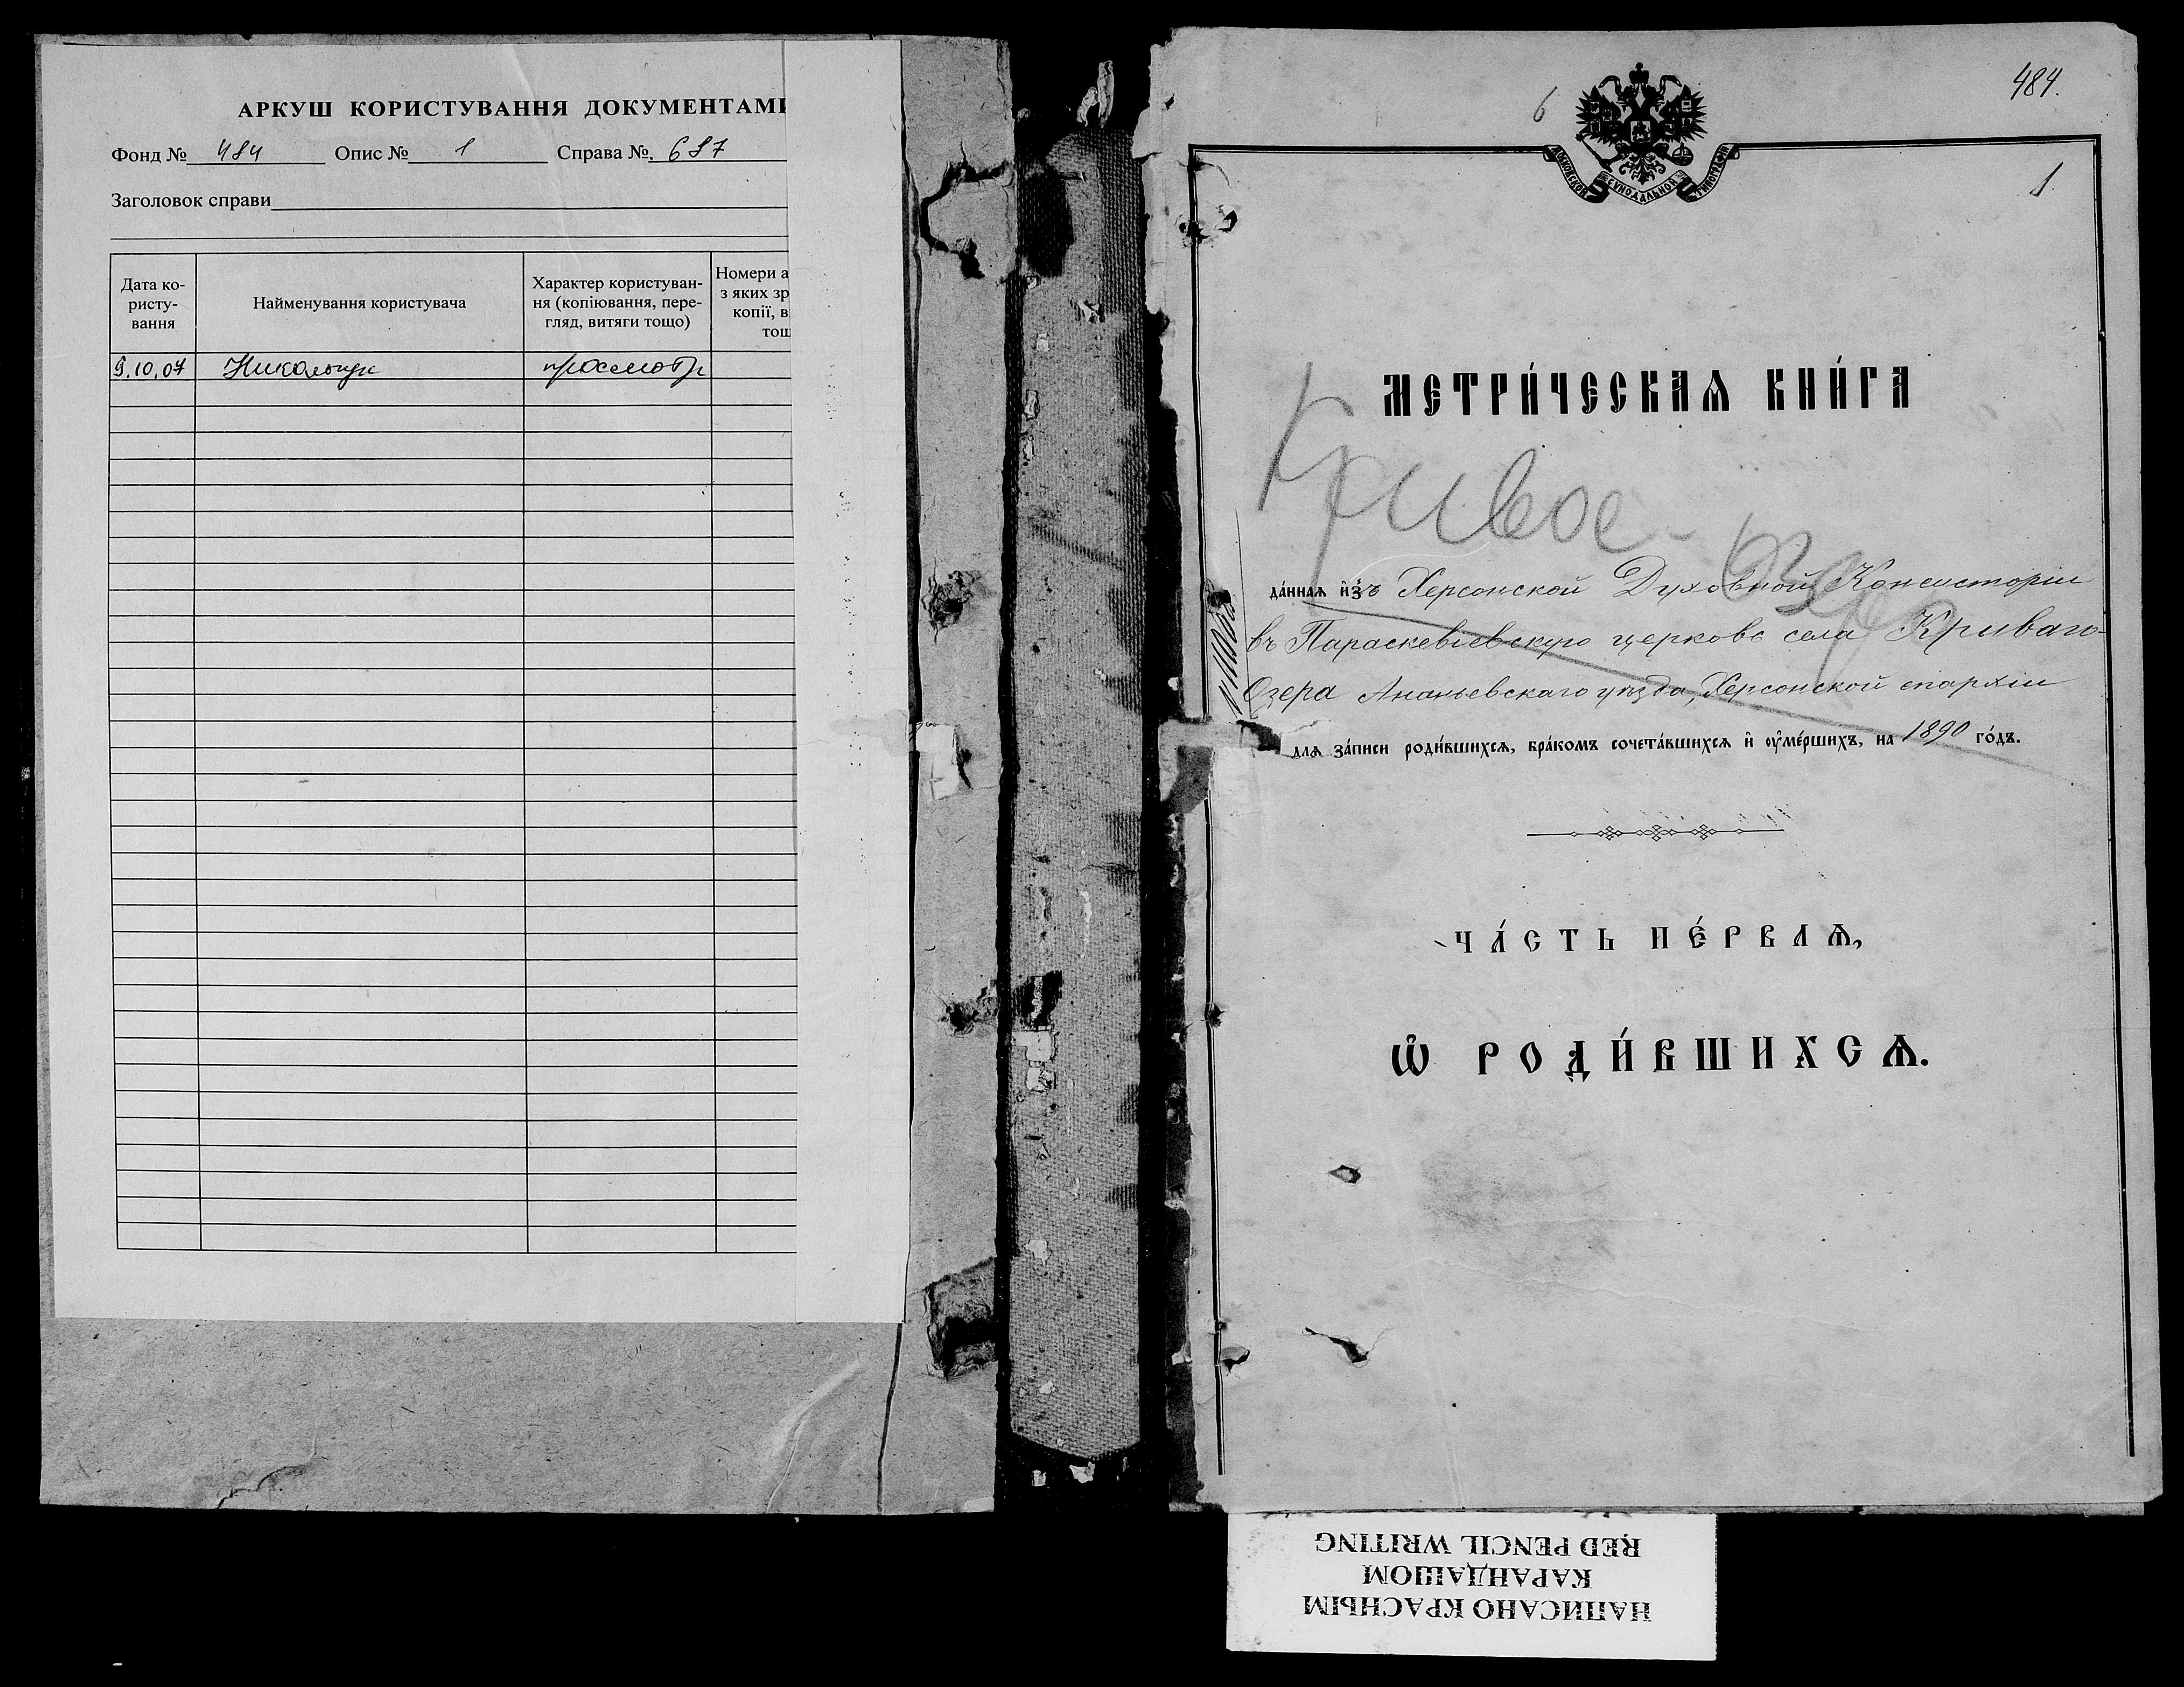 АРКУШ КОРИСТУВАННЯ ДОКУМЕНТАМИ
Фонд № 484 Опис № 1 Справа №. 687
Заголовок справи
Дата ко-
ристу-
вання
Найменування користувача
Характер користуван-
ня (копіювання, пере-
гляд, витяги тощо)
Номери а
з яких зр
копії, в
тощ
9.10.07 просмотр
484.
6
МОСКОВСКОЙ СѴНОДАЛЬНОЙ ТИПОГРАФІИ
1
МЕТРИ́ЧЕСКАѦ КНИ́ГА
Кривое-Озеро
да́ннаѧ и҆зъ Херсонской Духовной Консисторіи
въ Параскевіевскую церковь села Криваго-
Озера Ананьевскаго уѣзда, Херсонской епархіи
для за́писи роди́вшихсѧ, бра́комъ сочета́вшихсѧ и҆ оу҆ме́ршихъ, на 1890 го́дъ.
ЧА́СТЬ ПЕ́РВАѦ,
Ѡ҆ РОДИ́ВШИХСѦ.
НАПИСАНО КРАСНЫМ
КАРАНДАШОМ
RED PENCIL WRITING